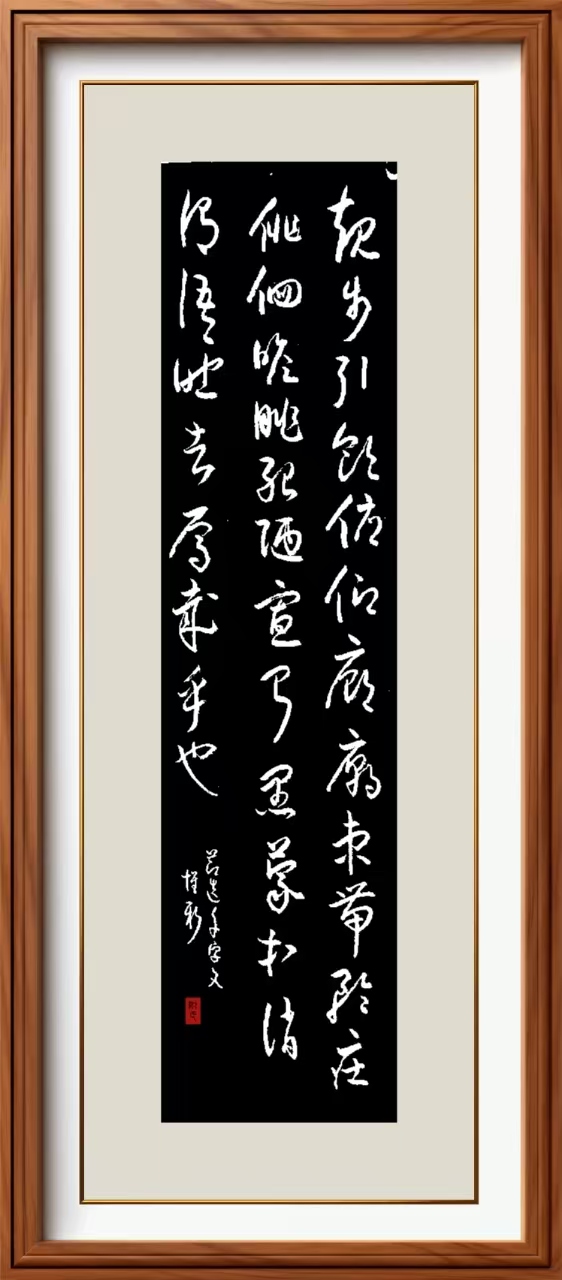 矩步引領俯仰廊廟束帶矜庄
徘徊瞻眺孤陋寡聞愚蒙等誚
謂語助者焉哉乎也
节選千字文